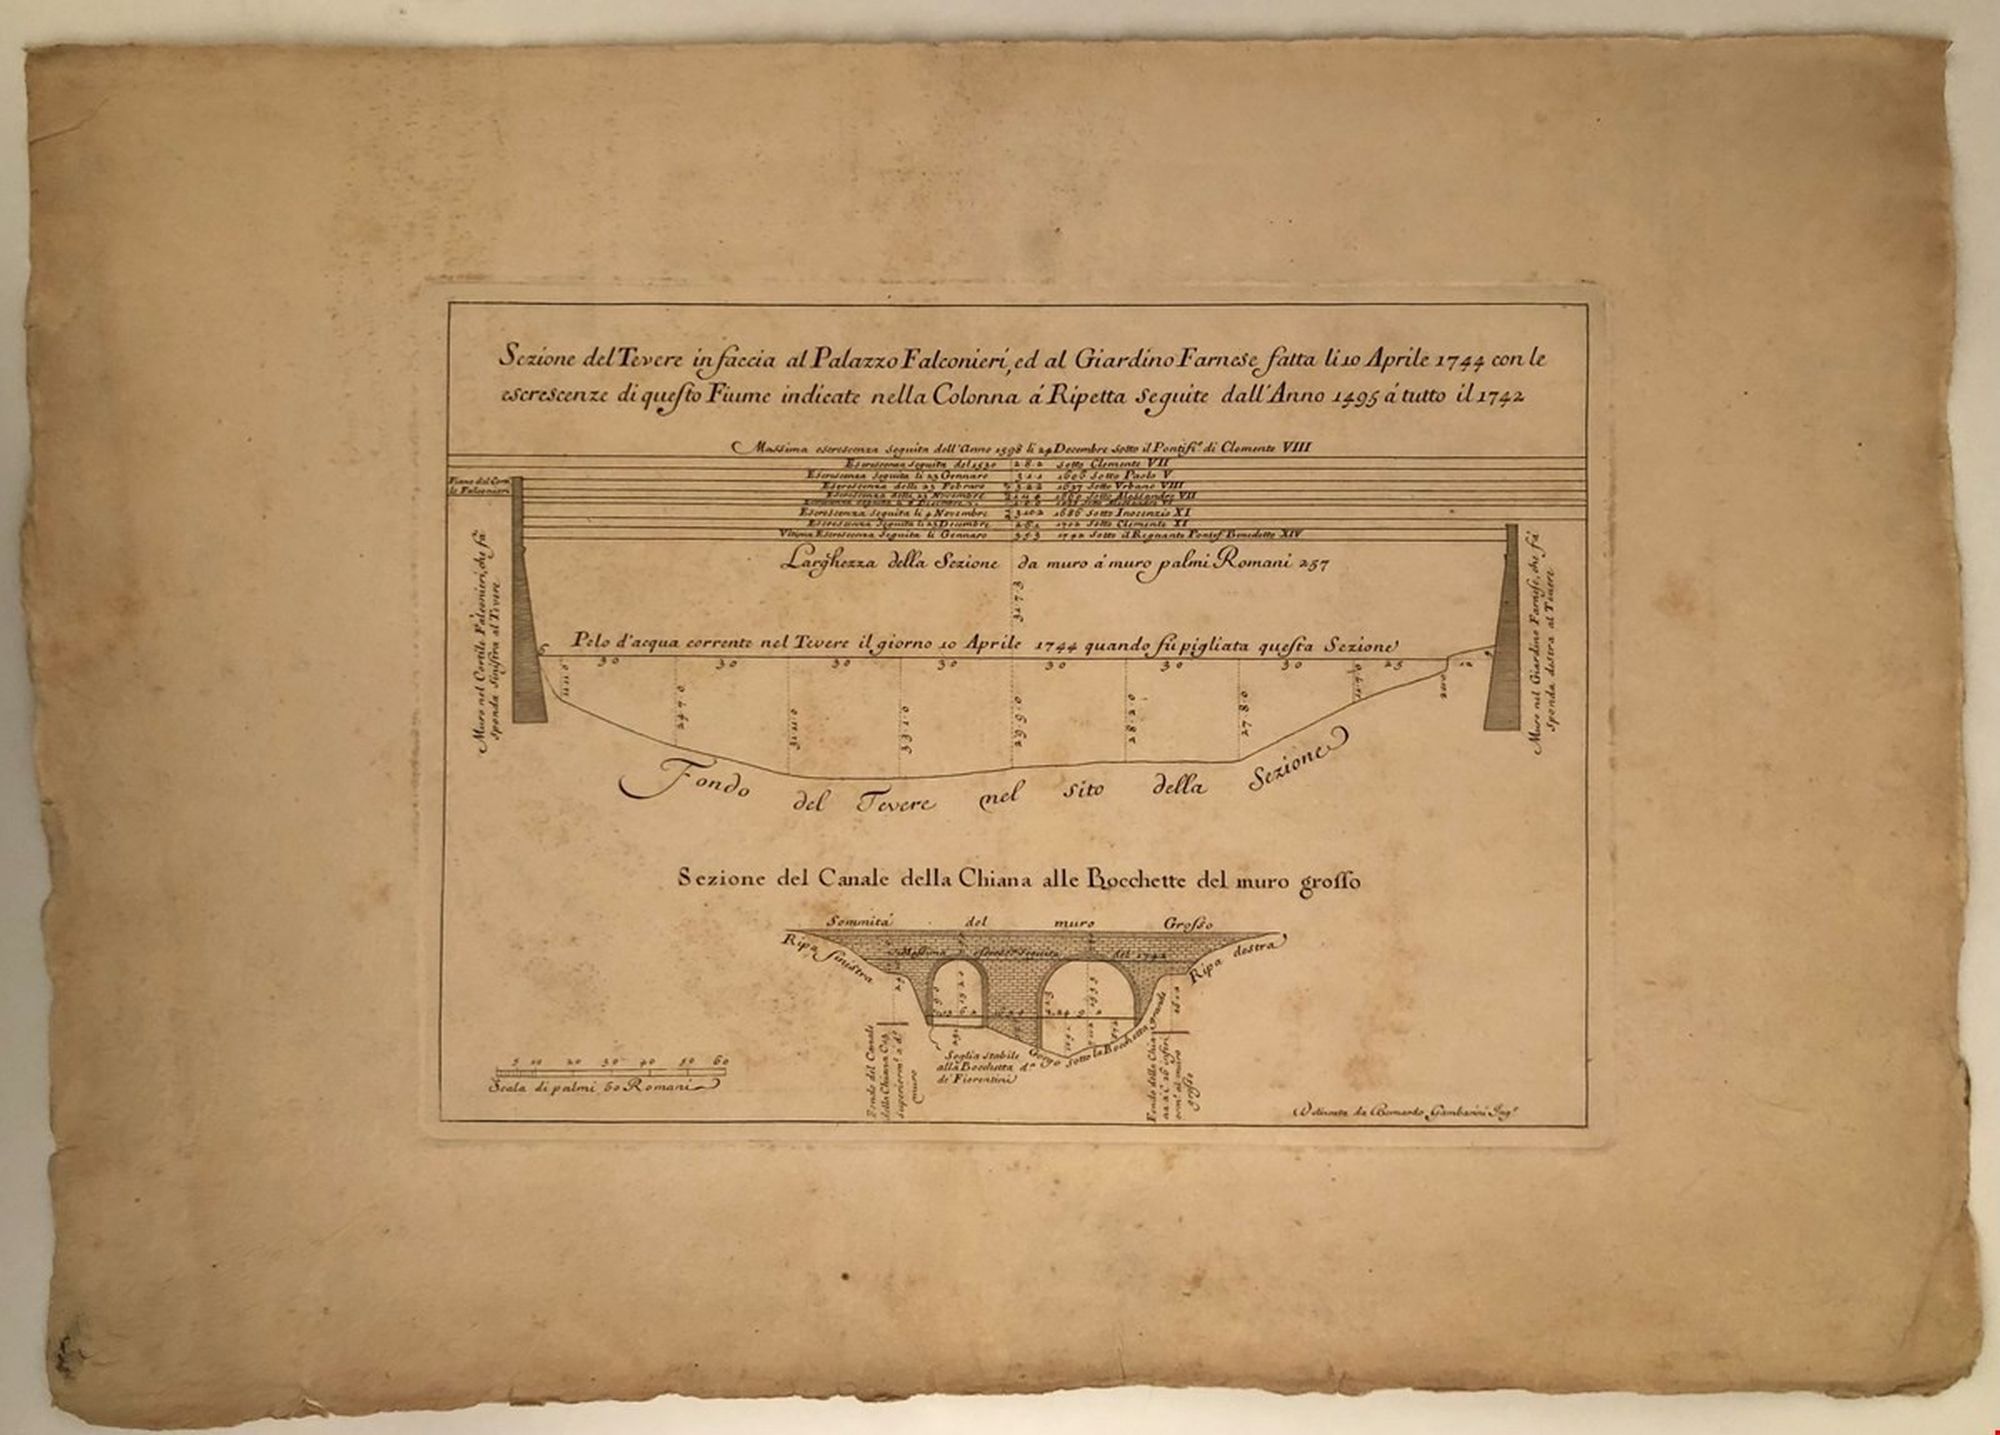 Sezione del Tevere in faccia al Palazzo Falconieri, ed al Giardino Farnese fatta li 10 Aprile 1744 con le
escrescenze di questo Fiume indicate nella Colonna á Ripetta seguite dall'Anno 1495 á tutto il 1742
Massima escrescenza seguita dell'Anno 1598 li 24 Decembre sotto il Pontif.º di Clemente VIII
Escrescenza seguita del 1530 2 8 2 sotto Clemente VII
Escrescenza seguita li 23 Gennaro 3 1 1 1606 sotto Paolo V
Escrescenza delli 23 Febraro 1637 sotto Urbano VIII
Escrescenza delli 1660 sotto Alessandro VII
Escrescenza seguita li 4 Novembre 1686 sotto Inocenzio XI
Escrescenza seguita li 23 Decembre 1702 sotto Clemente XI
Vltima Escrescenza seguita li Gennaro 3 5 3 1742 sotto il Regnante Pontef. Benedetto XIV
Piano del Corti
le Falconieri
Larghezza della Sezione da muro á muro palmi Romani 257
31 7 3
Muro nel Cortile Falconieri, che fà
sponda sinistra al Tevere
Muro nel Giardino Farnese, che fà
sponda destra al Tevere
Pelo d'acqua corrente nel Tevere il giorno 10 Aprile 1744 quando fù pigliata questa Sezione
30 30 30 30 30 30 30 25 12
24 7 0
31 11 0
33 1 0
29 9 0
28 2 0
27 8 0
Fondo del Tevere nel sito della Sezione
Sezione del Canale della Chiana alle Bocchette del muro grosso
Sommità del muro Grosso
Ripa sinistra
Ripa destra
Massima escres. seguita del 1742
Soglia stabile
alla Bocchetta d.ª
de' Fiorentini
Gorgo sotto la Bocchetta grande
Fondo del Canale
della Chiana
superiorm.e a d.º
muro
Fondo della Chia
na inferi
orm.e al muro
grosso
5 10 20 30 40 50 60
Scala di palmi 60 Romani
Delineata da Bernardo Gambarini Ing.e